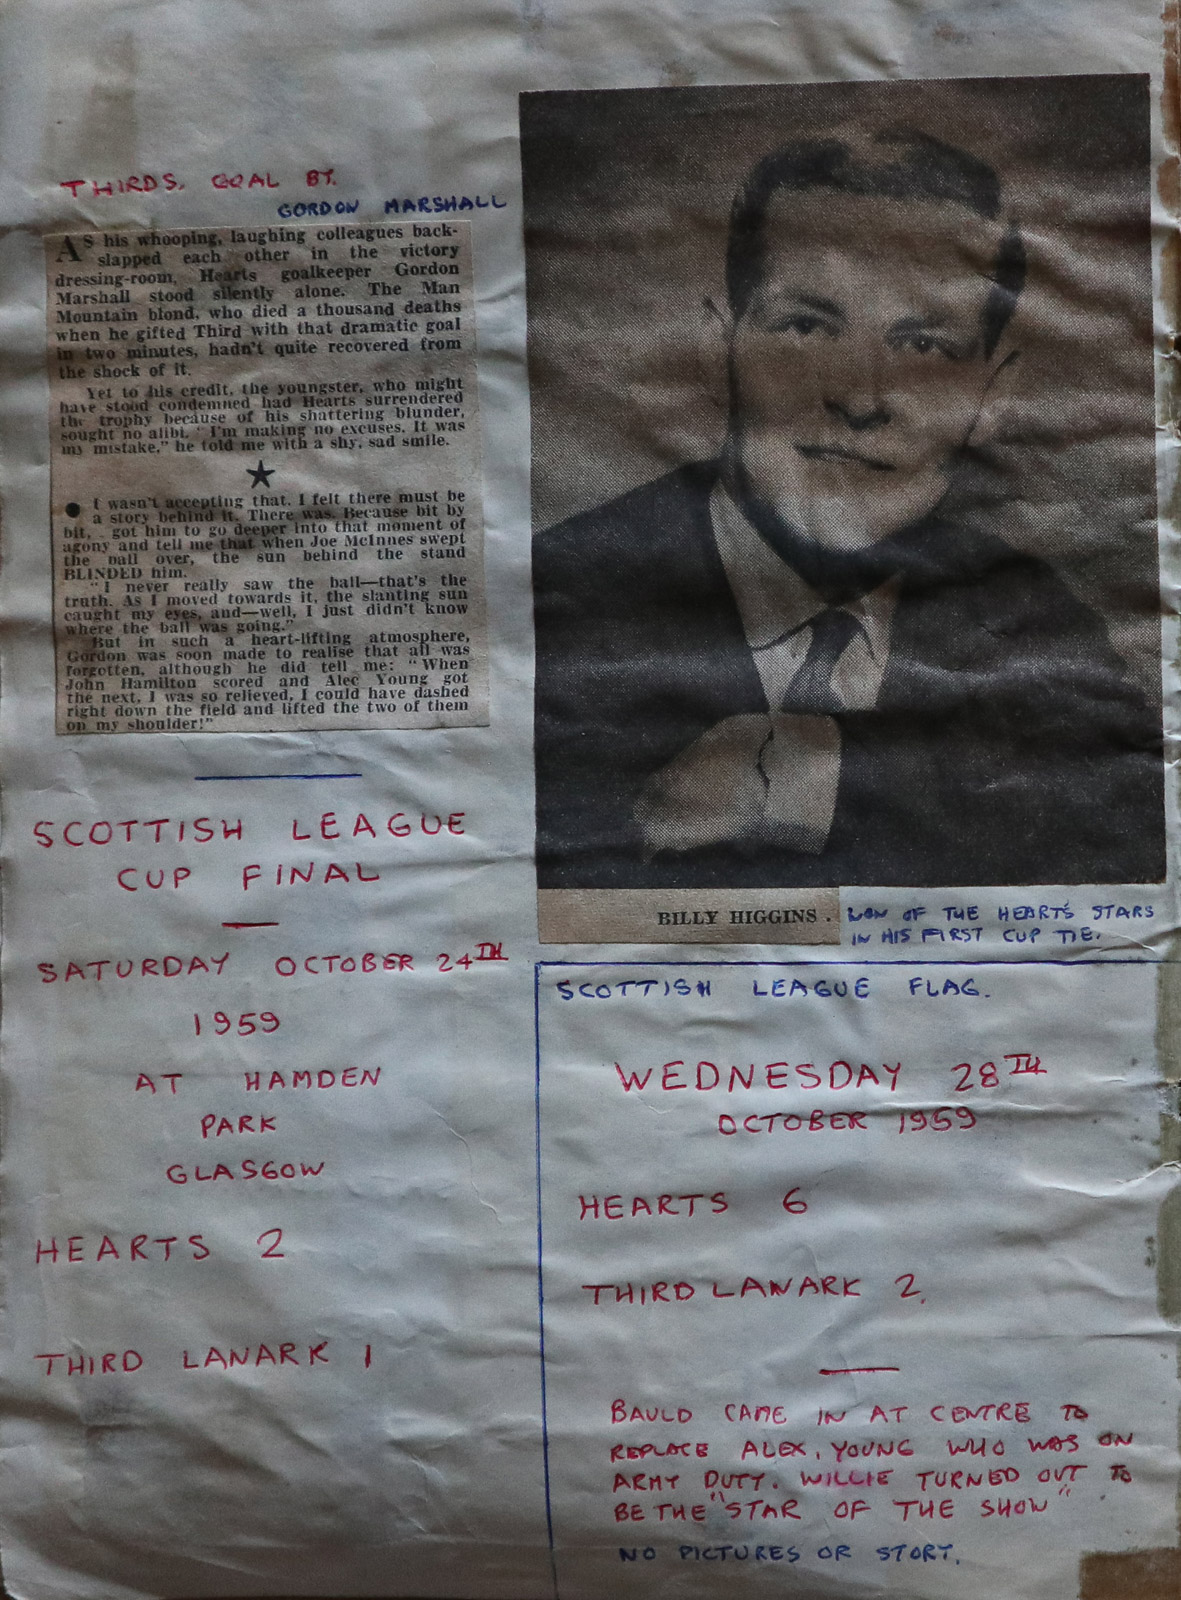 THIRDS. GOAL BY.
GORDON MARSHALL
AS his whooping, laughing colleagues back-
slapped each other in the victory
dressing-room, Hearts goalkeeper Gordon
Marshall stood silently alone. The Man
Mountain blond, who died a thousand deaths
when he gifted Third with that dramatic goal
in two minutes, hadn't quite recovered from
the shock of it.
Yet to his credit, the youngster, who might
have stood condemned had Hearts surrendered
the trophy because of his shattering blunder,
sought no alibi. "I'm making no excuses. It was
my mistake," he told me with a shy, sad smile.
★
● I wasn't accepting that. I felt there must be
a story behind it. There was. Because bit by
bit, got him to go deeper into that moment of
agony and tell me that when Joe McInnes swept
the ball over, the sun behind the stand
BLINDED him.
"I never really saw the ball—that's the
truth. As I moved towards it, the slanting sun
caught my eyes, and—well, I just didn't know
where the ball was going."
But in such a heart-lifting atmosphere,
Gordon was soon made to realise that all was
forgotten, although he did tell me: "When
John Hamilton scored and Alec Young got
the next, I was so relieved, I could have dashed
right down the field and lifted the two of them
on my shoulder!"
SCOTTISH LEAGUE
CUP FINAL
SATURDAY OCTOBER 24TH
1959
AT HAMDEN
PARK
GLASGOW
HEARTS 2
THIRD LANARK 1
BILLY HIGGINS.
OF THE HEARTS STARS
IN HIS FIRST CUP TIE.
SCOTTISH LEAGUE FLAG.
WEDNESDAY 28TH
OCTOBER 1959
HEARTS 6
THIRD LANARK 2.
BAULD CAME IN AT CENTRE TO
REPLACE ALEX. YOUNG WHO WAS ON
ARMY DUTY. WILLIE TURNED OUT TO
BE THE "STAR OF THE SHOW"
NO PICTURES OR STORY.